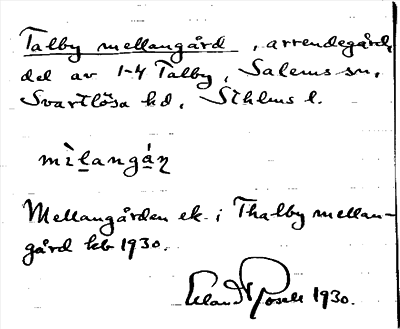 Talby mellangård, arrendegård,
del av 1-4 Talby, Salems sn,
Svartlösa hd, Sthlms l.
mìlangáŋ
Mellangården ek. i Thalby mellan-
gård kb 1930.
Erland Rosell 1930.